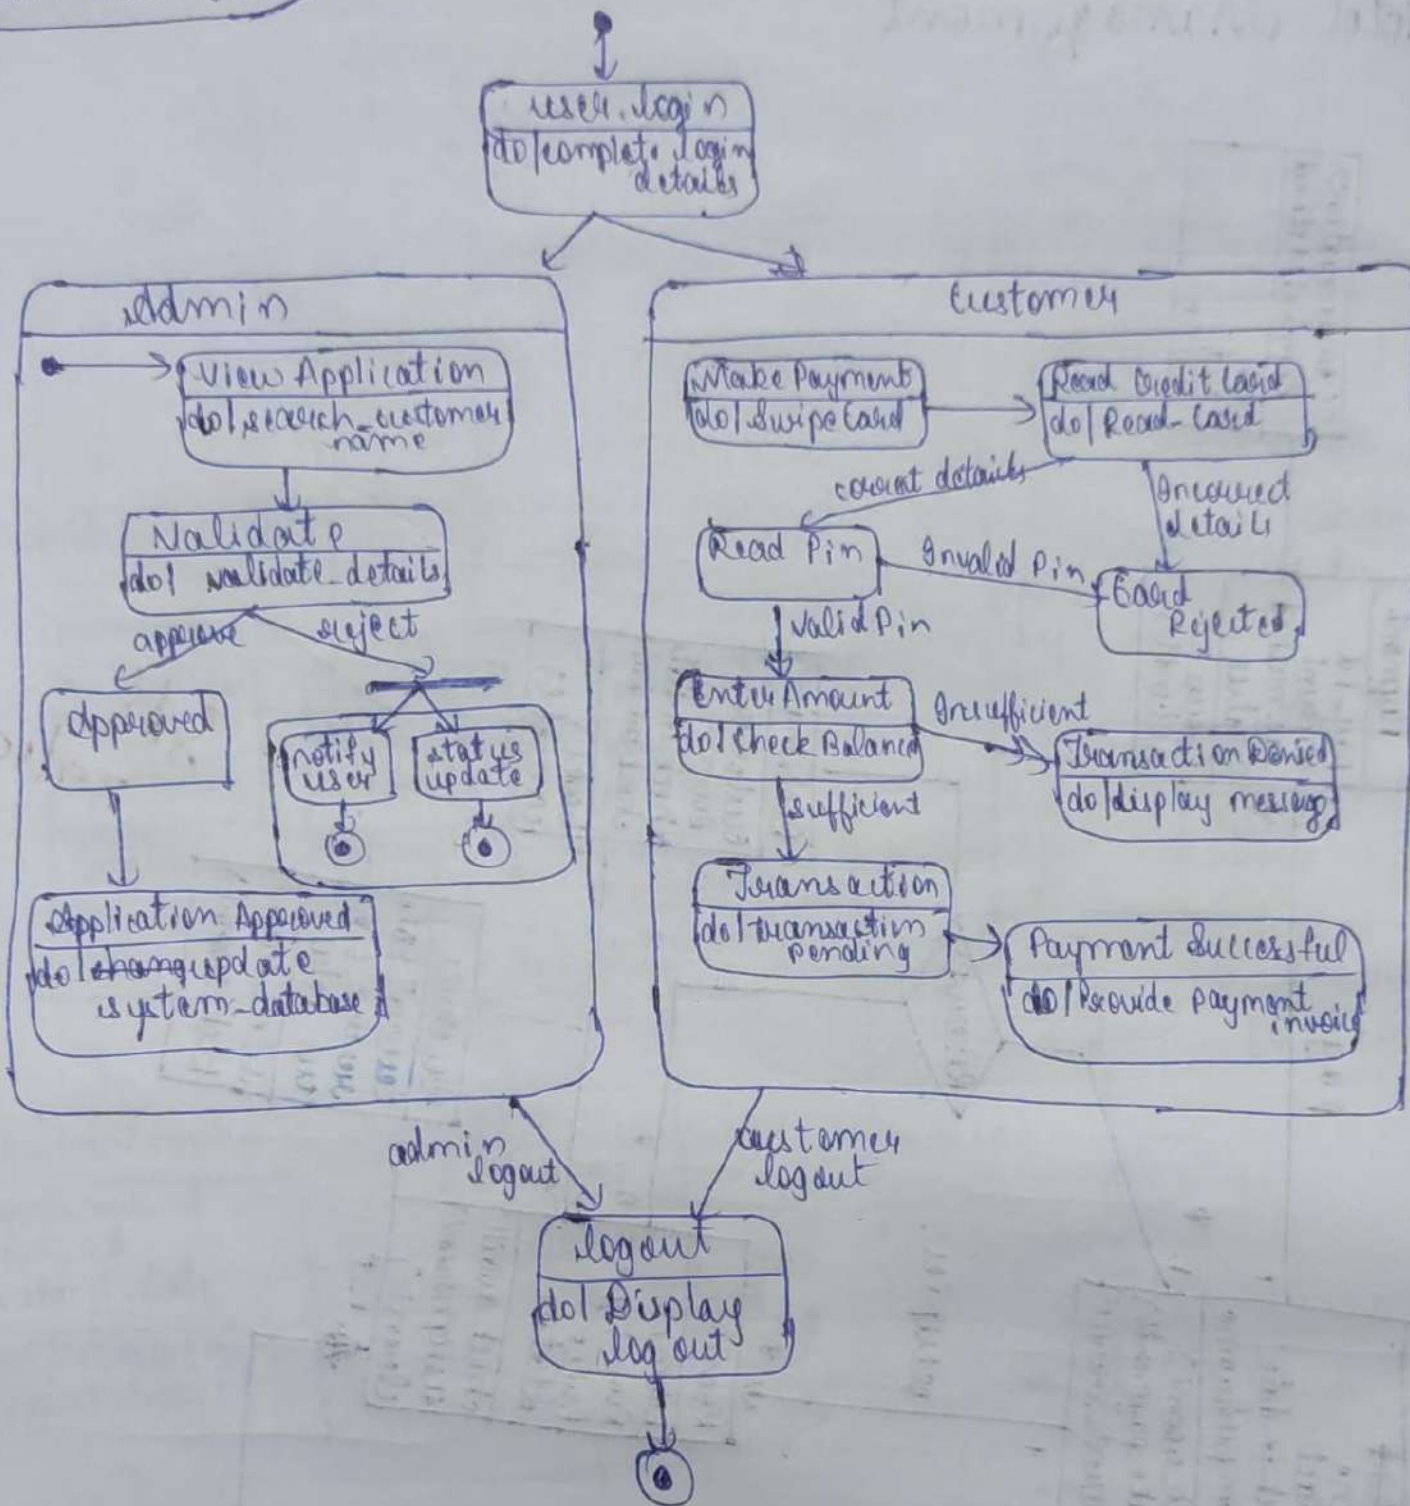 user login
do/complete login
details
Admin
View Application
do/search_customer
name
Validate
do/ validate_details
approve
reject
Approved
notify
user
status
update
Application Approved
do/update
system_database
Customer
Make Payment
do/SwipeCard
Read Credit Card
do/Read-Card
correct details
Incorrect
details
Read Pin
Invalid Pin
Card
Rejected
Valid Pin
Enter Amount
do/Check Balance
Insufficient
Transaction Denied
do/display message
sufficient
Transaction
do/transaction
pending
Payment Successful
do/Provide payment
invoice
admin
logout
customer
logout
logout
do/Display
log out